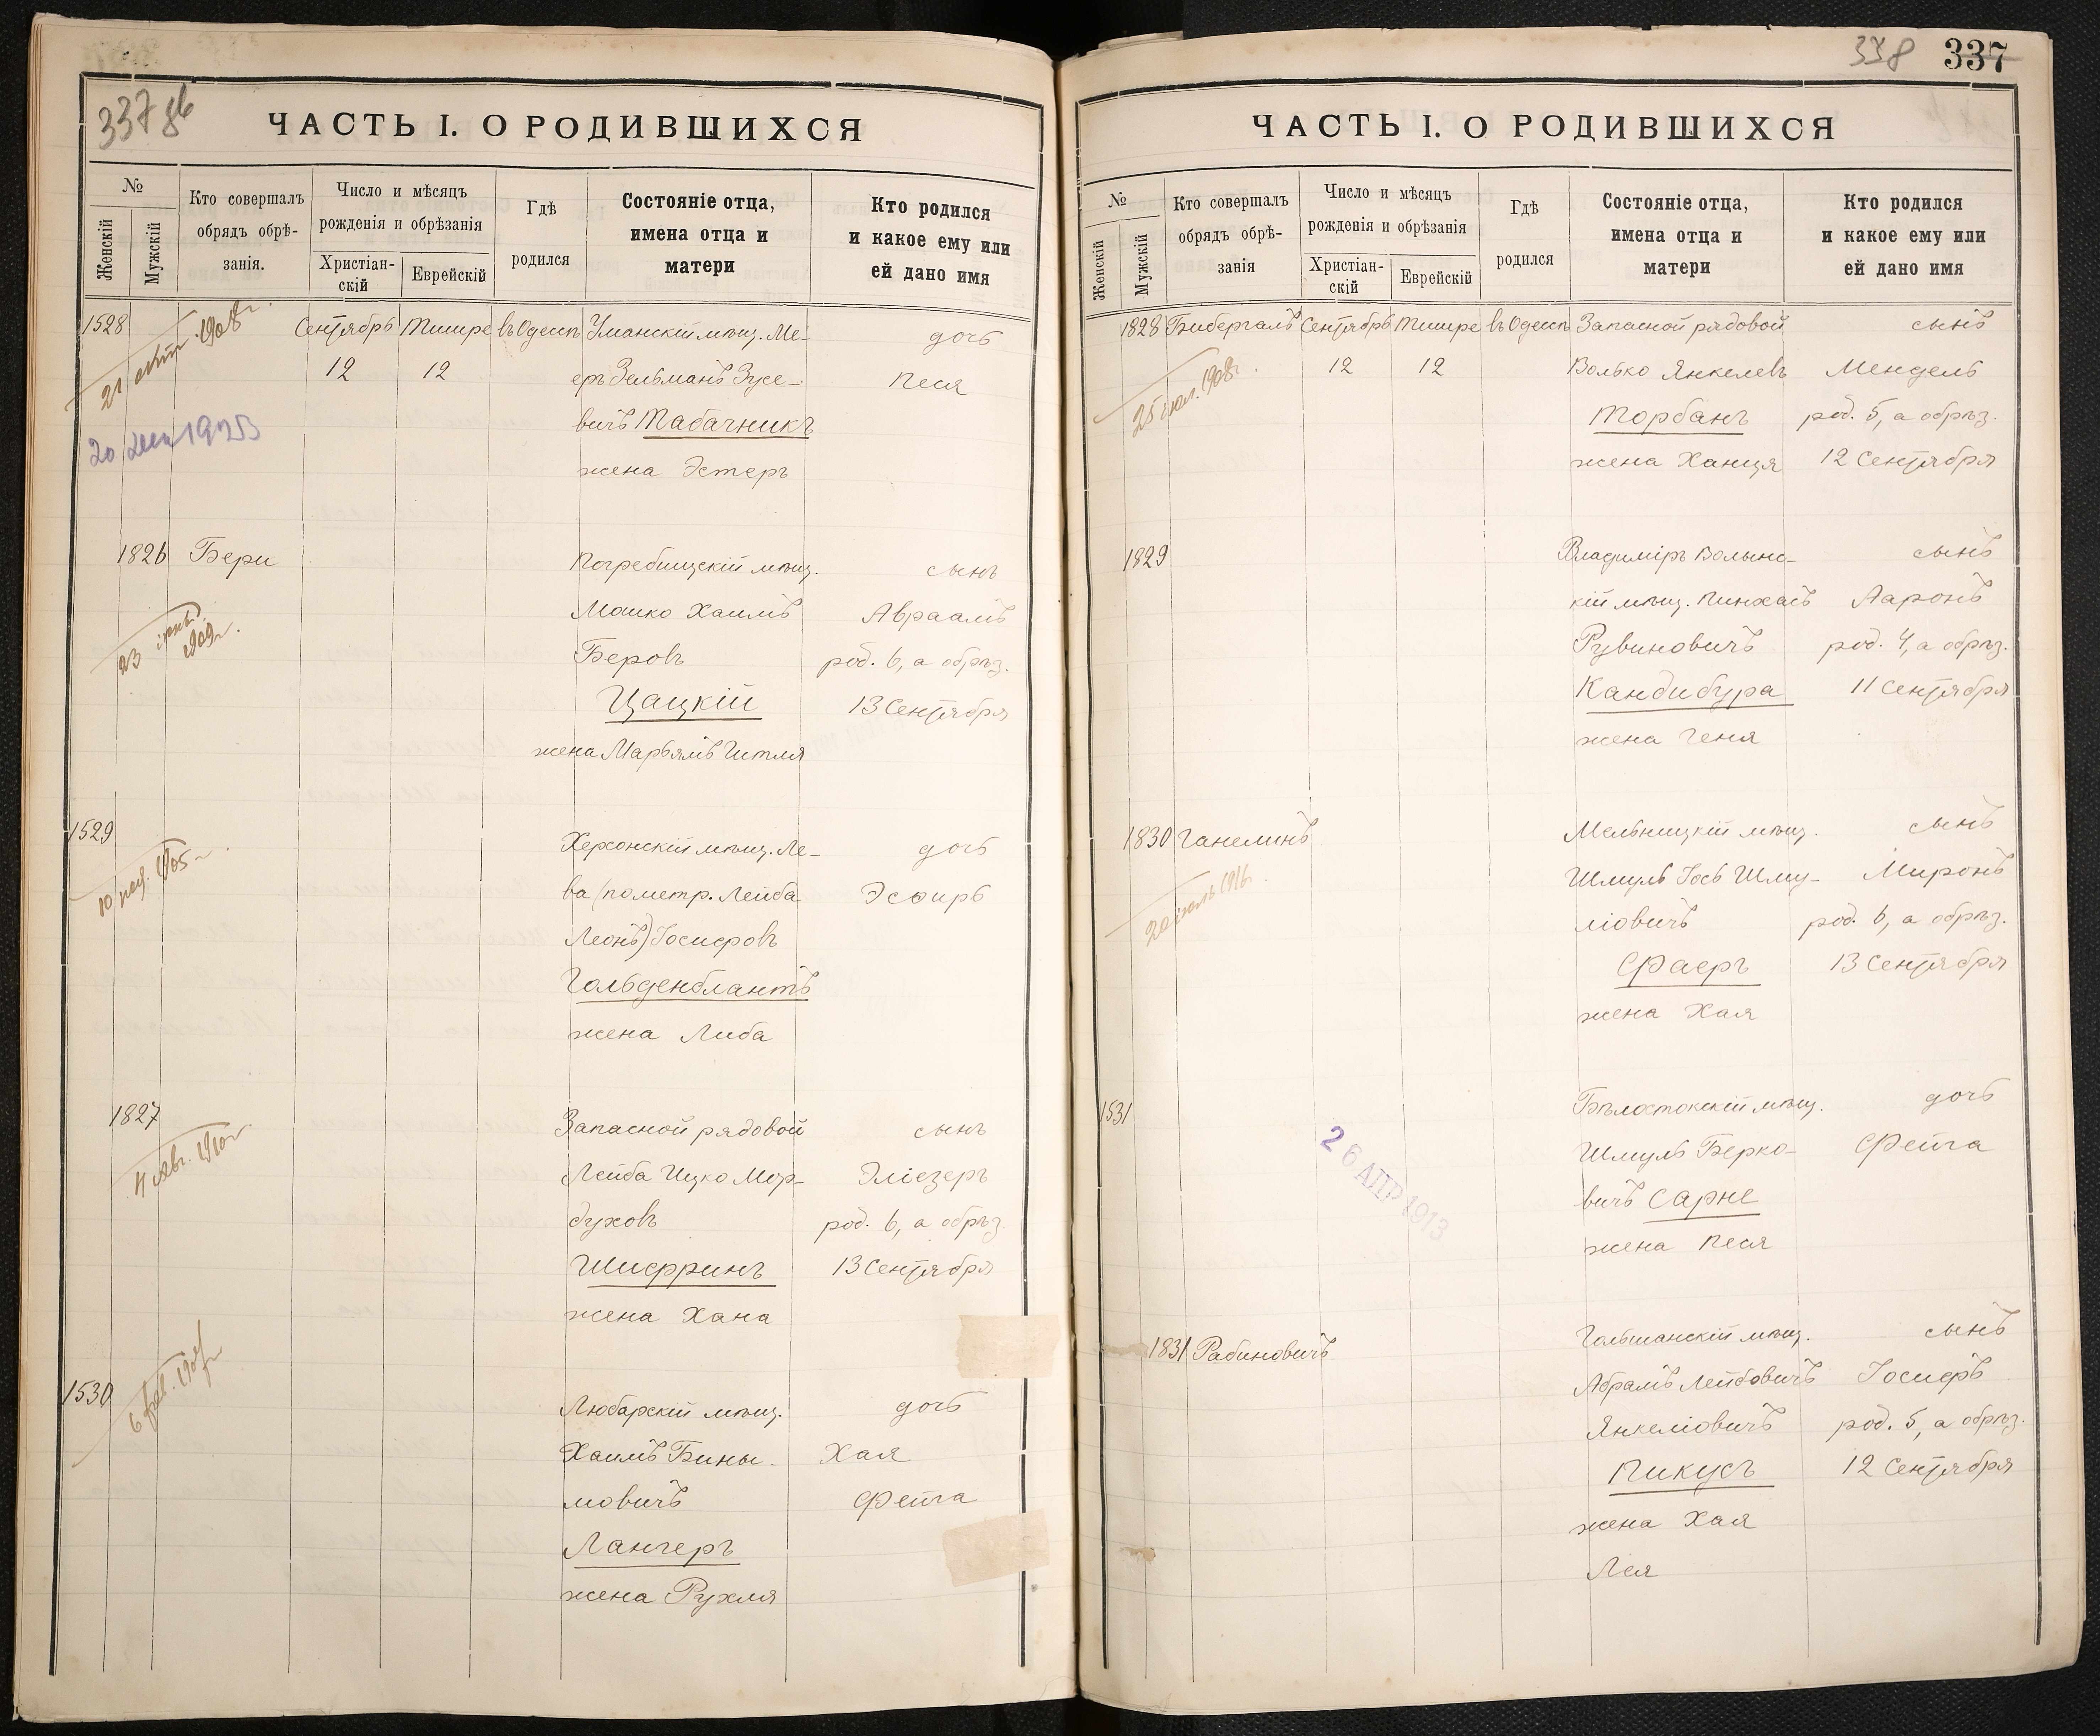 337 об
ЧАСТЬ I. О РОДИВШИХСЯ
№
Женскій
Мужскій
Кто совершалъ
обрядъ обрѣ-
занія.
Число и мѣсяцъ
рожденія и обрѣзанія
Христіан-
скій
Еврейскій
Гдѣ
родился
Состояніе отца,
имена отца и
матери
Кто родился
и какое ему или
ей дано имя
1528 Сентябрь Тишре въ Одессѣ Уманскій мѣщ. Ме- дочь
12 12 еръ Зельманъ Зусе- Песя
вичъ Табачникъ
жена Эстеръ
21 1908 г.
20 1925
1826 Бери Погребищскій мѣщ. сынъ
Мошко Хаимъ Авраамъ
Беровъ род. 6, а обрѣз.
Цацкій 13 Сентября
жена Марьямъ Гитля
23 1909 г.
1529 Херсонскій мѣщ. Ле- дочь
ва (пометр. Лейба Эсѳирь
Леонъ) Іосифовъ
Гольденблантъ
жена Либа
10 1905 г.
1827 Запасной рядовой сынъ
Лейба Ицко Мор- Эліезеръ
духовъ род. 6, а обрѣз.
Шифринъ 13 Сентября
жена Хана
4 1910 г.
1530 Любарскій мѣщ. дочь
Хаимъ Бины- Хая
мовичъ Фейга
Лангеръ
жена Рухля
6 фев.
338 337
ЧАСТЬ I. О РОДИВШИХСЯ
№
Женскій
Мужскій
Кто совершалъ
обрядъ обрѣ-
занія
Число и мѣсяцъ
рожденія и обрѣзанія
Христіан-
скій
Еврейскій
Гдѣ
родился
Состояніе отца,
имена отца и
матери
Кто родился
и какое ему или
ей дано имя
1828 Бибергалъ Сентябрь Тишре въ Одессѣ Запасной рядовой сынъ
12 12 Волько Янкелевъ Мендель
Торбанъ род. 5, а обрѣз.
жена Ханця 12 Сентября
25 1908 г.
1829 Владиміръ Волынс- сынъ
кій мѣщ. Пинхасъ Ааронъ
Рувиновичъ род. 4, а обрѣз.
Кандибура 11 Сентября
жена Геня
1830 Ганелинъ Мельницкій мѣщ. сынъ
Шмуль Іось Шму- Миронъ
ліовичъ род. 6, а обрѣз.
Фаеръ 13 Сентября
жена Хая
20 1916
1531 Бѣлостокскій мѣщ. дочь
Шмуль Берко- Фейга
вичъ Сарне
жена Песя
26 АПР 1913
1831 Рабиновичъ Гольшанскій мѣщ. сынъ
Абрамъ Лейбовичъ Іосифъ
Янкеліовичъ род. 5, а обрѣз.
Пикусъ 12 Сентября
жена Хая
Лея